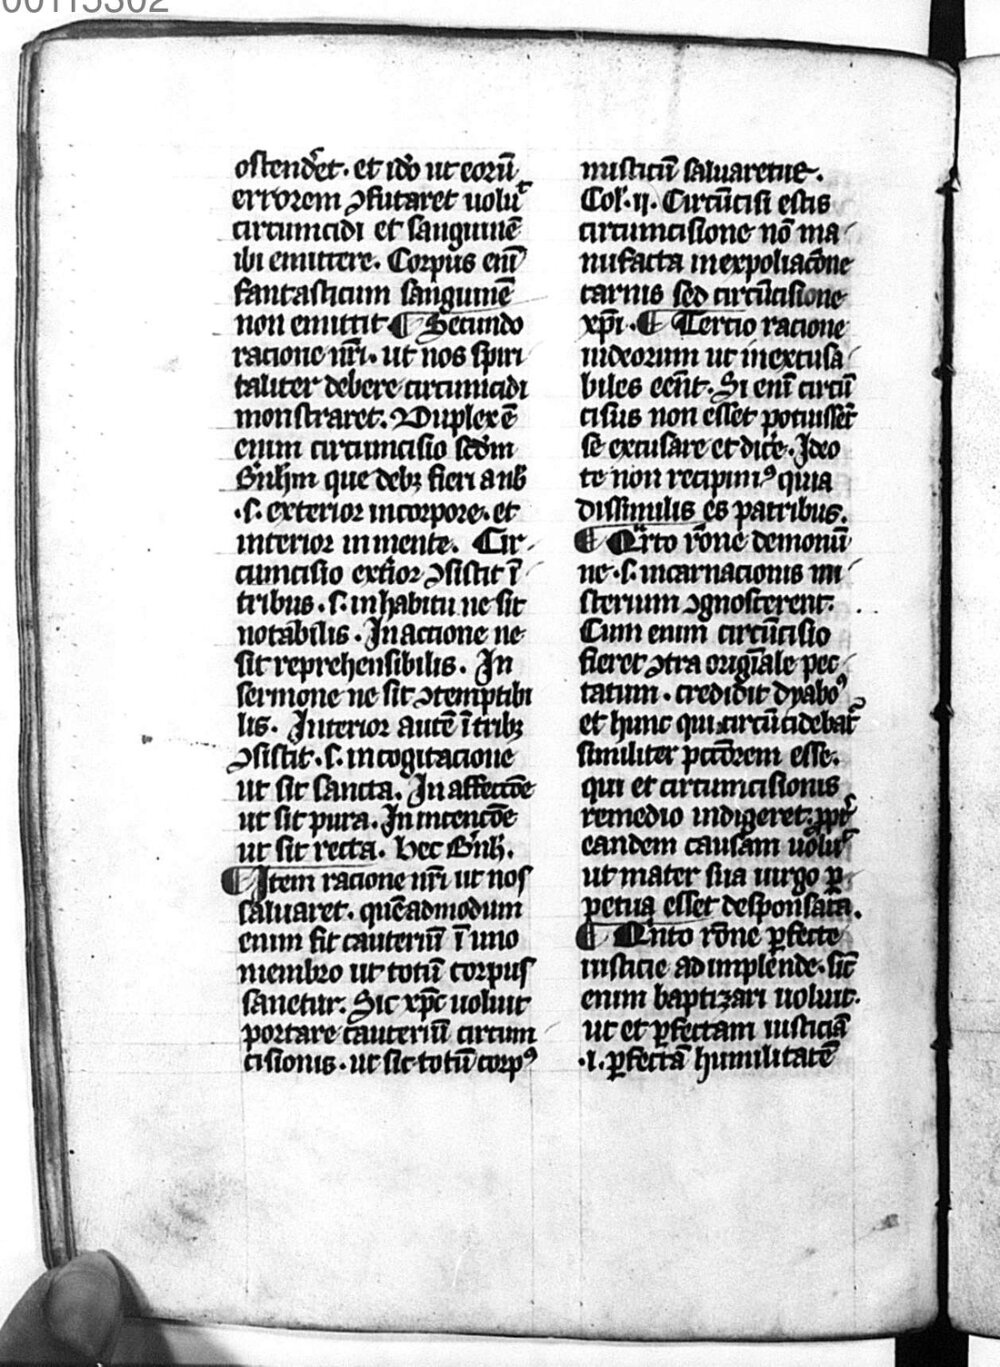 00115302
ostend̾et · et ido̾ ut eorū
errorem ꝯfutaret uoluͭ
circumcidi et sanguinē
ibi emittere. Corpus enī
fantasticum sanguinē
non emittit ¶ Secundo
racione nr̄i · ut nos spiri
taliter debere circumcidi
monstraret. Duplex ē
enim circumcisio scd̾m
B̾nh̾m que debꝫ fieri a nob̾
·s· exterior in corpore · et
interior in mente. Cir
cumcisio ext̾ior ꝯsistit ī
tribus · s· in habitu ne sit
notabilis · In actione ne
sit reprehensibilis. In
sermone ne sit ꝯtemptibi
lis. Interior autē ī tribꝫ
ꝯsistit · s· in cogitacione
ut sit sancta. In affectōe
ut sit pura. In intencōe
ut sit recta. hec B̾nh̾.
¶ Item racione nr̄i ut nos
saluaret. quēadmodum
enim fit cauteriū ī uno
membro ut totū corpus
sanetur. Sic xp̄c uoluit
portare cauteriū circum
cisionis · ut sic totū corpꝰ
misticū saluaretur.
Col̾ · ij · Circūcisi estis
circumcisione nō ma
nufacta in expoliacōne
carnis sed circūcisione
xp̄i · ¶ Tercio racione
iudeorum ut inexcusa
biles eēnt. Si enī circū
cisus non esset potuissēt
se excusare et dic̾e. Ideo
te non recipimꝰ quia
dissimilis es patribus.
¶ Qͣrto rōne demonū
ne · s· incarnacionis mi
sterium ꝯgnoscerent.
Cum enim circūcisio
fieret ꝯtra originale pec
catum · credidit dyabolꝰ
et hunc qui circūcidebat᷑
similiter pcc̄orem esse.
qui et circumcisionis
remedio indigeret. ꝓpt̾
eandem causam uoluͭ
ut mater sua uirgo ꝑ
petua esset desponsata.
¶ Qͥnto rōne ꝑfecte
iusticie adimplende · sic̄
enim baptizari uoluit.
ut et ꝑfectam iusticiā
·i· ꝑfectā humilitatē